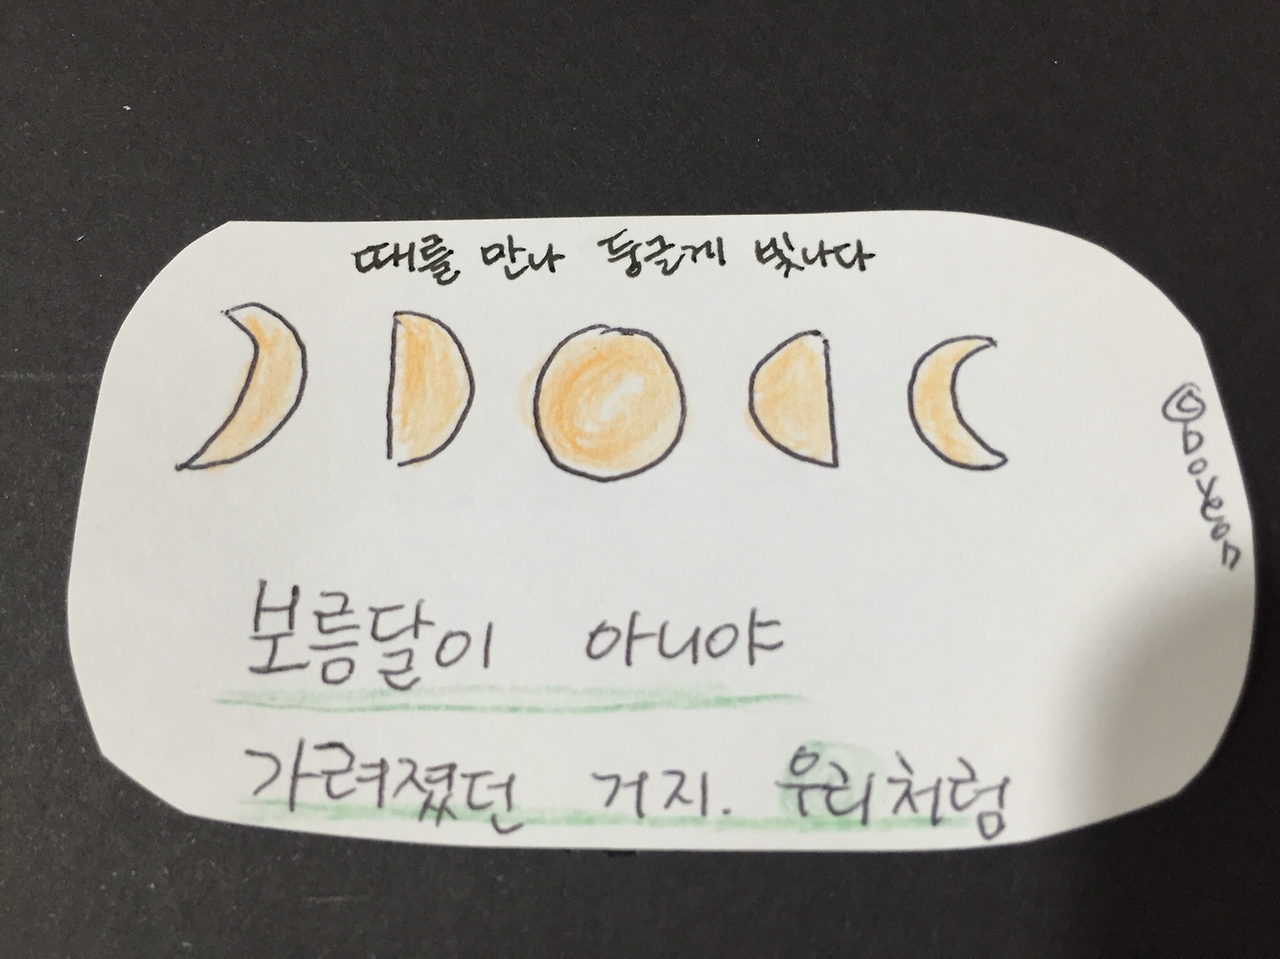 때를 만나 둥글게 빛나다
보름달이 아니야
가려졌던 거지. 우리처럼